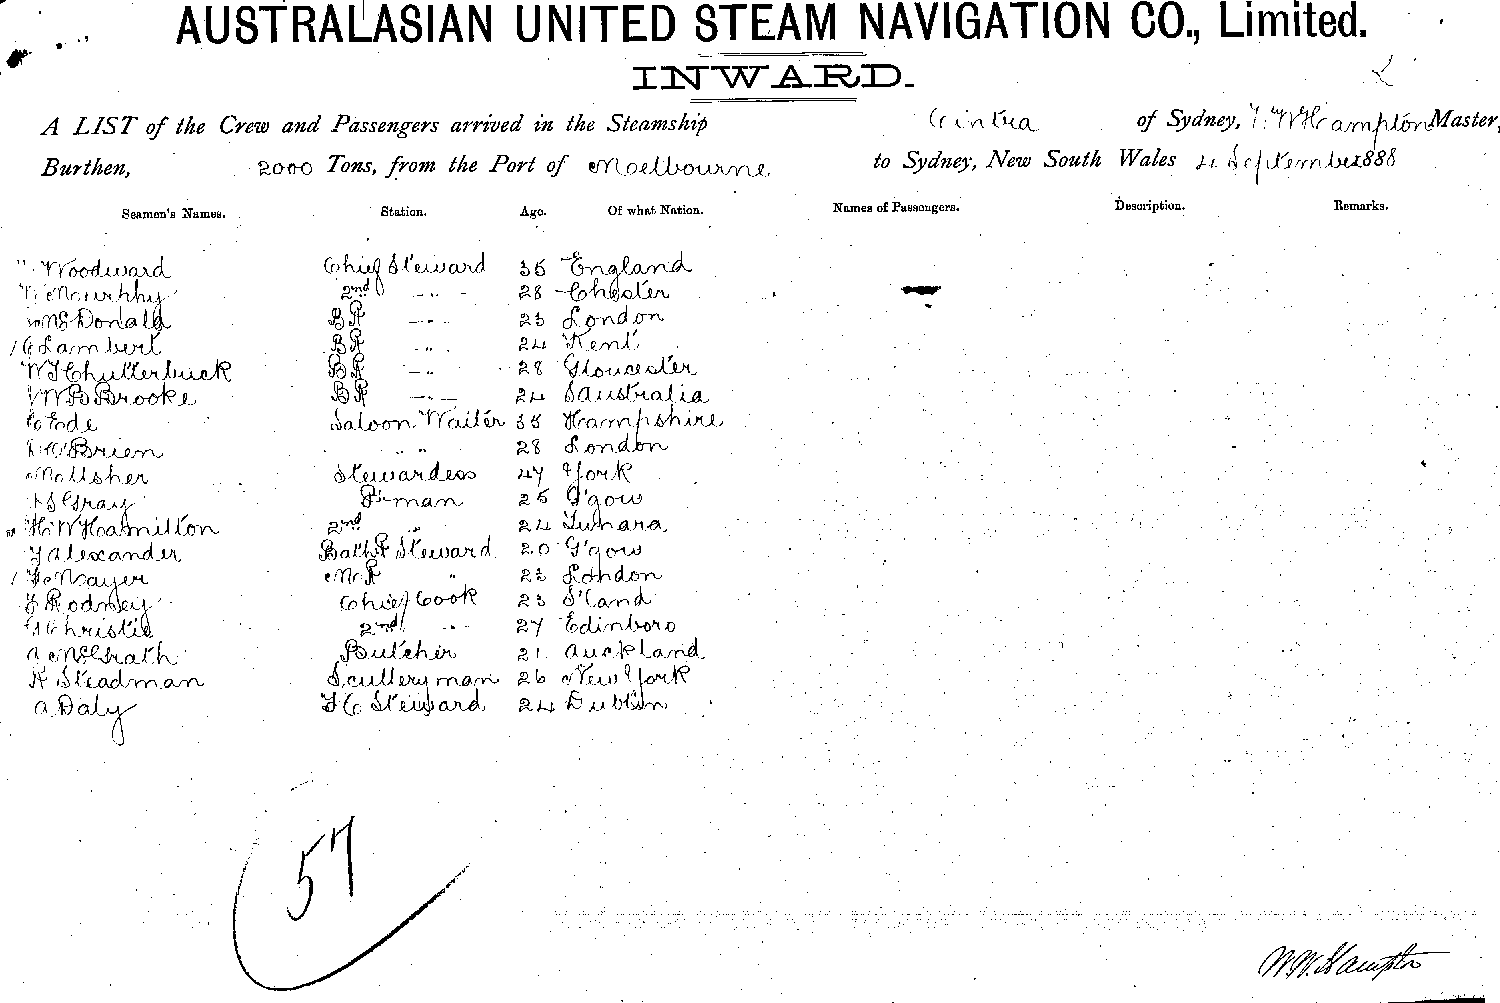 AUSTRALASIAN UNITED STEAM NAVIGATION CO., Limited.
INWARD.
A LIST of the Crew and Passengers arrived in the Steamship Cintra of Sydney, W Hampton Master,
Burthen, 2000 Tons, from the Port of Melbourne to Sydney, New South Wales 4 September 1888
Seamen's Names. Station. Age. Of what Nation. Names of Passengers. Description. Remarks.
Woodward Chief Steward 35 England
Murphy 2nd " 28 Chester
McDonald BR " 23 London
C Lambert BR " 24 Kent
W J Clutterbuck BR " 28 Gloucester
W B Brooke BR " 24 S Australia
C Ede Saloon Waiter 35 Hampshire
O'Brien " " 28 London
Stewardess 47 York
Gray P'man 25 G'gow
H W Hamilton 2nd " 24
J Alexander Bath R Steward 20 G'gow
F Mayer M R " 23 London
Rodney Chief Cook 23 S'land
Christie 2nd " 27 Edinboro
A McGrath Butcher 21 Auckland
R Steadman Sculleryman 26 New York
A Daly F C Steward 24 Dublin
57
W W Hampton